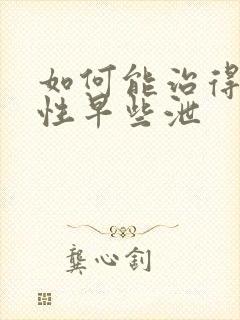 如何能治得
性早些泄
龚心钊